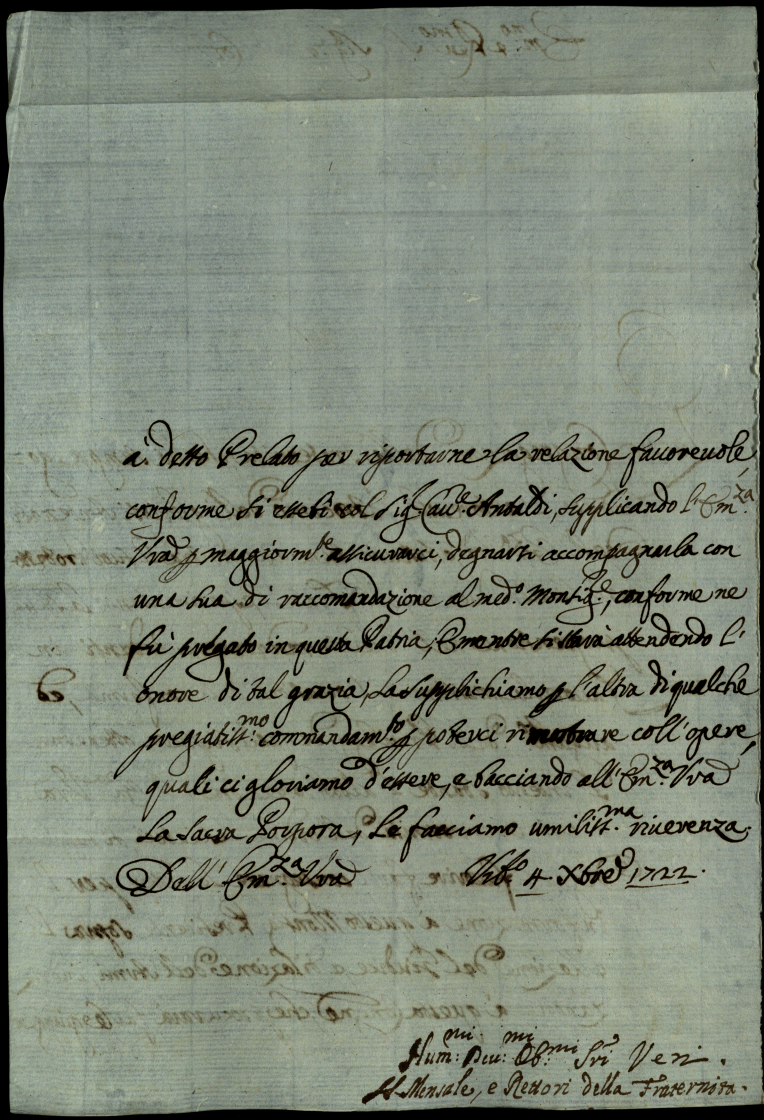 à detto Prelato per riportarne la relazione favorevole,
conforme si esebì col Sig.r Cav.e Antaldi, supplicando l'Em.za
Vra p maggiorm.te assicurarci, degnarsi accompagnarla con
una sua di raccomandazione al med.o Monsig.e, conforme ne
fù pregato in questa Patria; E mentre si starà attendendo l'
onore di tal grazia, La supplichiamo p l'altra di qualche
pregiatiss.mo commandam.to p poterci rimostrare coll'opere,
quali ci gloriamo d'essere, e bacciando all'Em.za Vra
La Sacra Porpora, Le facciamo umiliss.ma riverenza.
Dell'Em.za Vra 4 Xbre 1722.
Hum.mi Dev.mi Ob.mi Sri Veri.
Il Mensale, e Rettori della Fraternita.